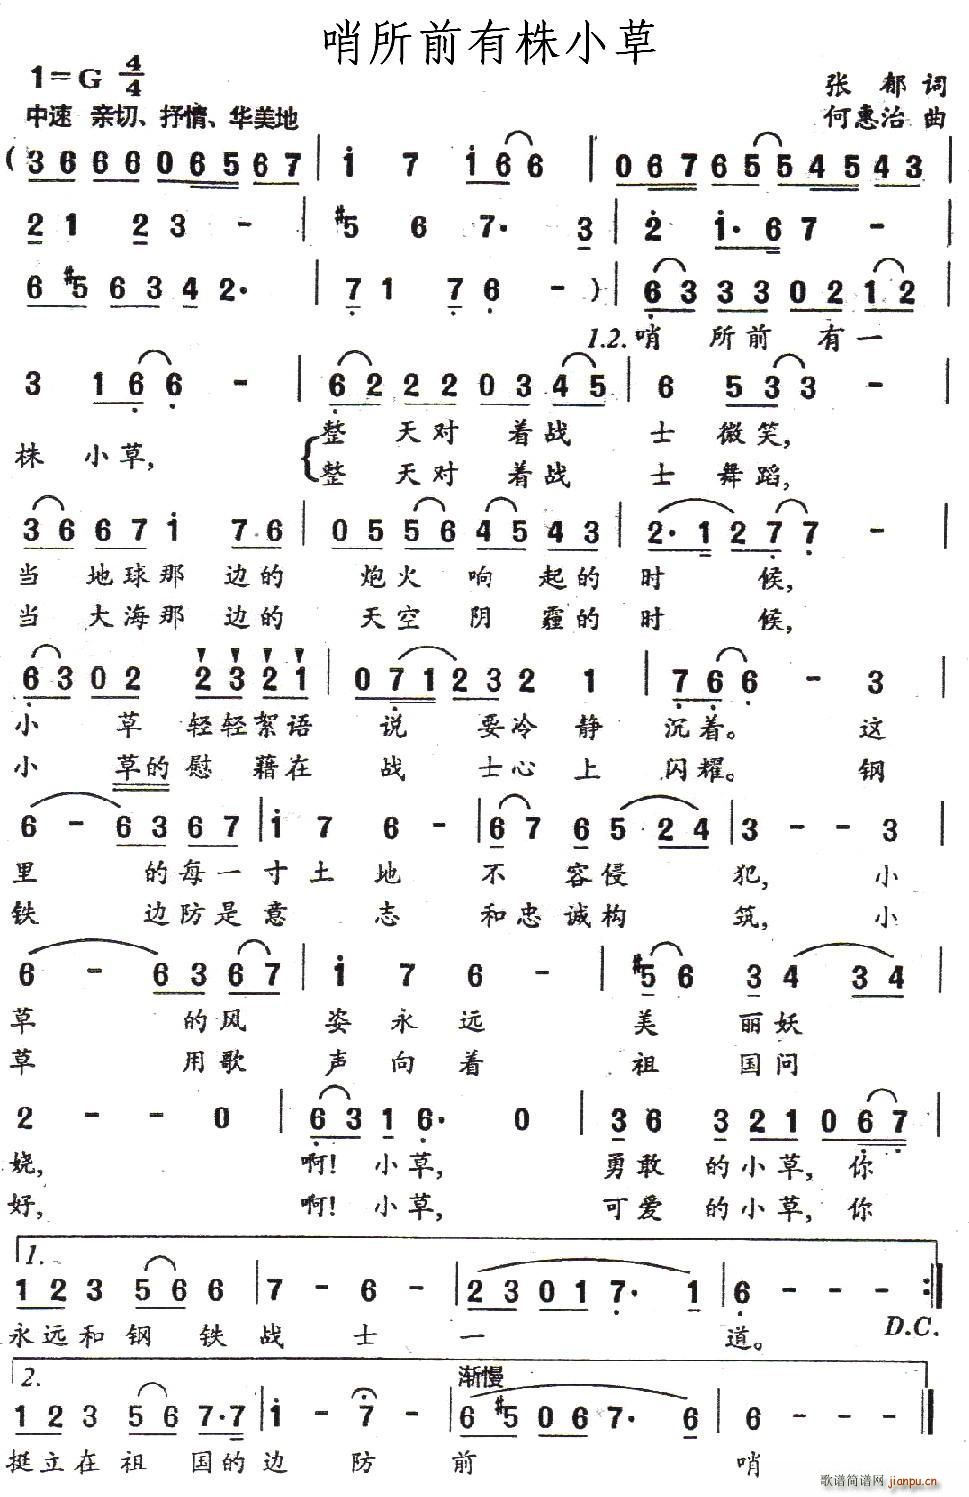 哨所前有株小草
1=G 4/4
张郁词
中速 亲切、抒情、华美地
何惠治曲
(3 6 6 6 0 6 5 6 7 | i 7 i 6 6 | 0 6 7 6 5 5 4 5 4 3 |
2 1 2 3 - | #5 6 7· 3 | 2 i· 6 7 - |
6 #5 6 3 4 2· | 7 1 7 6 - ) | 6 3 3 3 0 2 1 2
1.2.哨 所前 有一
3 1 6 6 - | 6 2 2 2 0 3 4 5 | 6 5 3 3 - |
株 小草, 整 天对 着战 士 微笑,
整 天对 着战 士 舞蹈,
3 6 6 7 i 7·6 | 0 5 5 6 4 5 4 3 | 2·1 2 7 7 - |
当 地球那 边的 炮火 响 起的 时 候,
当 大海那 边的 天空 阴 霾的 时 候,
6 3 0 2 2 3 2 1 | 0 7 1 2 3 2 1 | 7 6 6 - 3 |
小 草 轻轻絮语 说 要冷 静 沉着。 这
小 草的 慰 藉在 战 士心 上 闪耀。 钢
6 - 6 3 6 7 | i 7 6 - | 6 7 6 5 2 4 | 3 - - 3 |
里 的每一 寸土 地 不 容侵 犯, 小
铁 边防是 意 志 和忠 诚构 筑, 小
6 - 6 3 6 7 | i 7 6 - | #5 6 3 4 3 4 |
草 的风 姿 永 远 美 丽妖
草 用歌 声 向 着 祖 国问
2 - - 0 | 6 3 1 6· 0 | 3 6 3 2 1 0 6 7 |
娆, 啊! 小草, 勇敢 的小草, 你
好, 啊! 小草, 可爱 的小草, 你
1.
1 2 3 5 6 6 | 7 - 6 - | 2 3 0 1 7· 1 | 6 - - - :|
永远和 钢 铁 战 士 一 道。 D.C.
2. 渐慢
1 2 3 5 6 7·7 | i - 7 - | 6 #5 0 6 7· 6 | 6 - - - ‖
挺立在 祖 国的 边 防 前 哨
歌谱简谱网 jianpu.cn